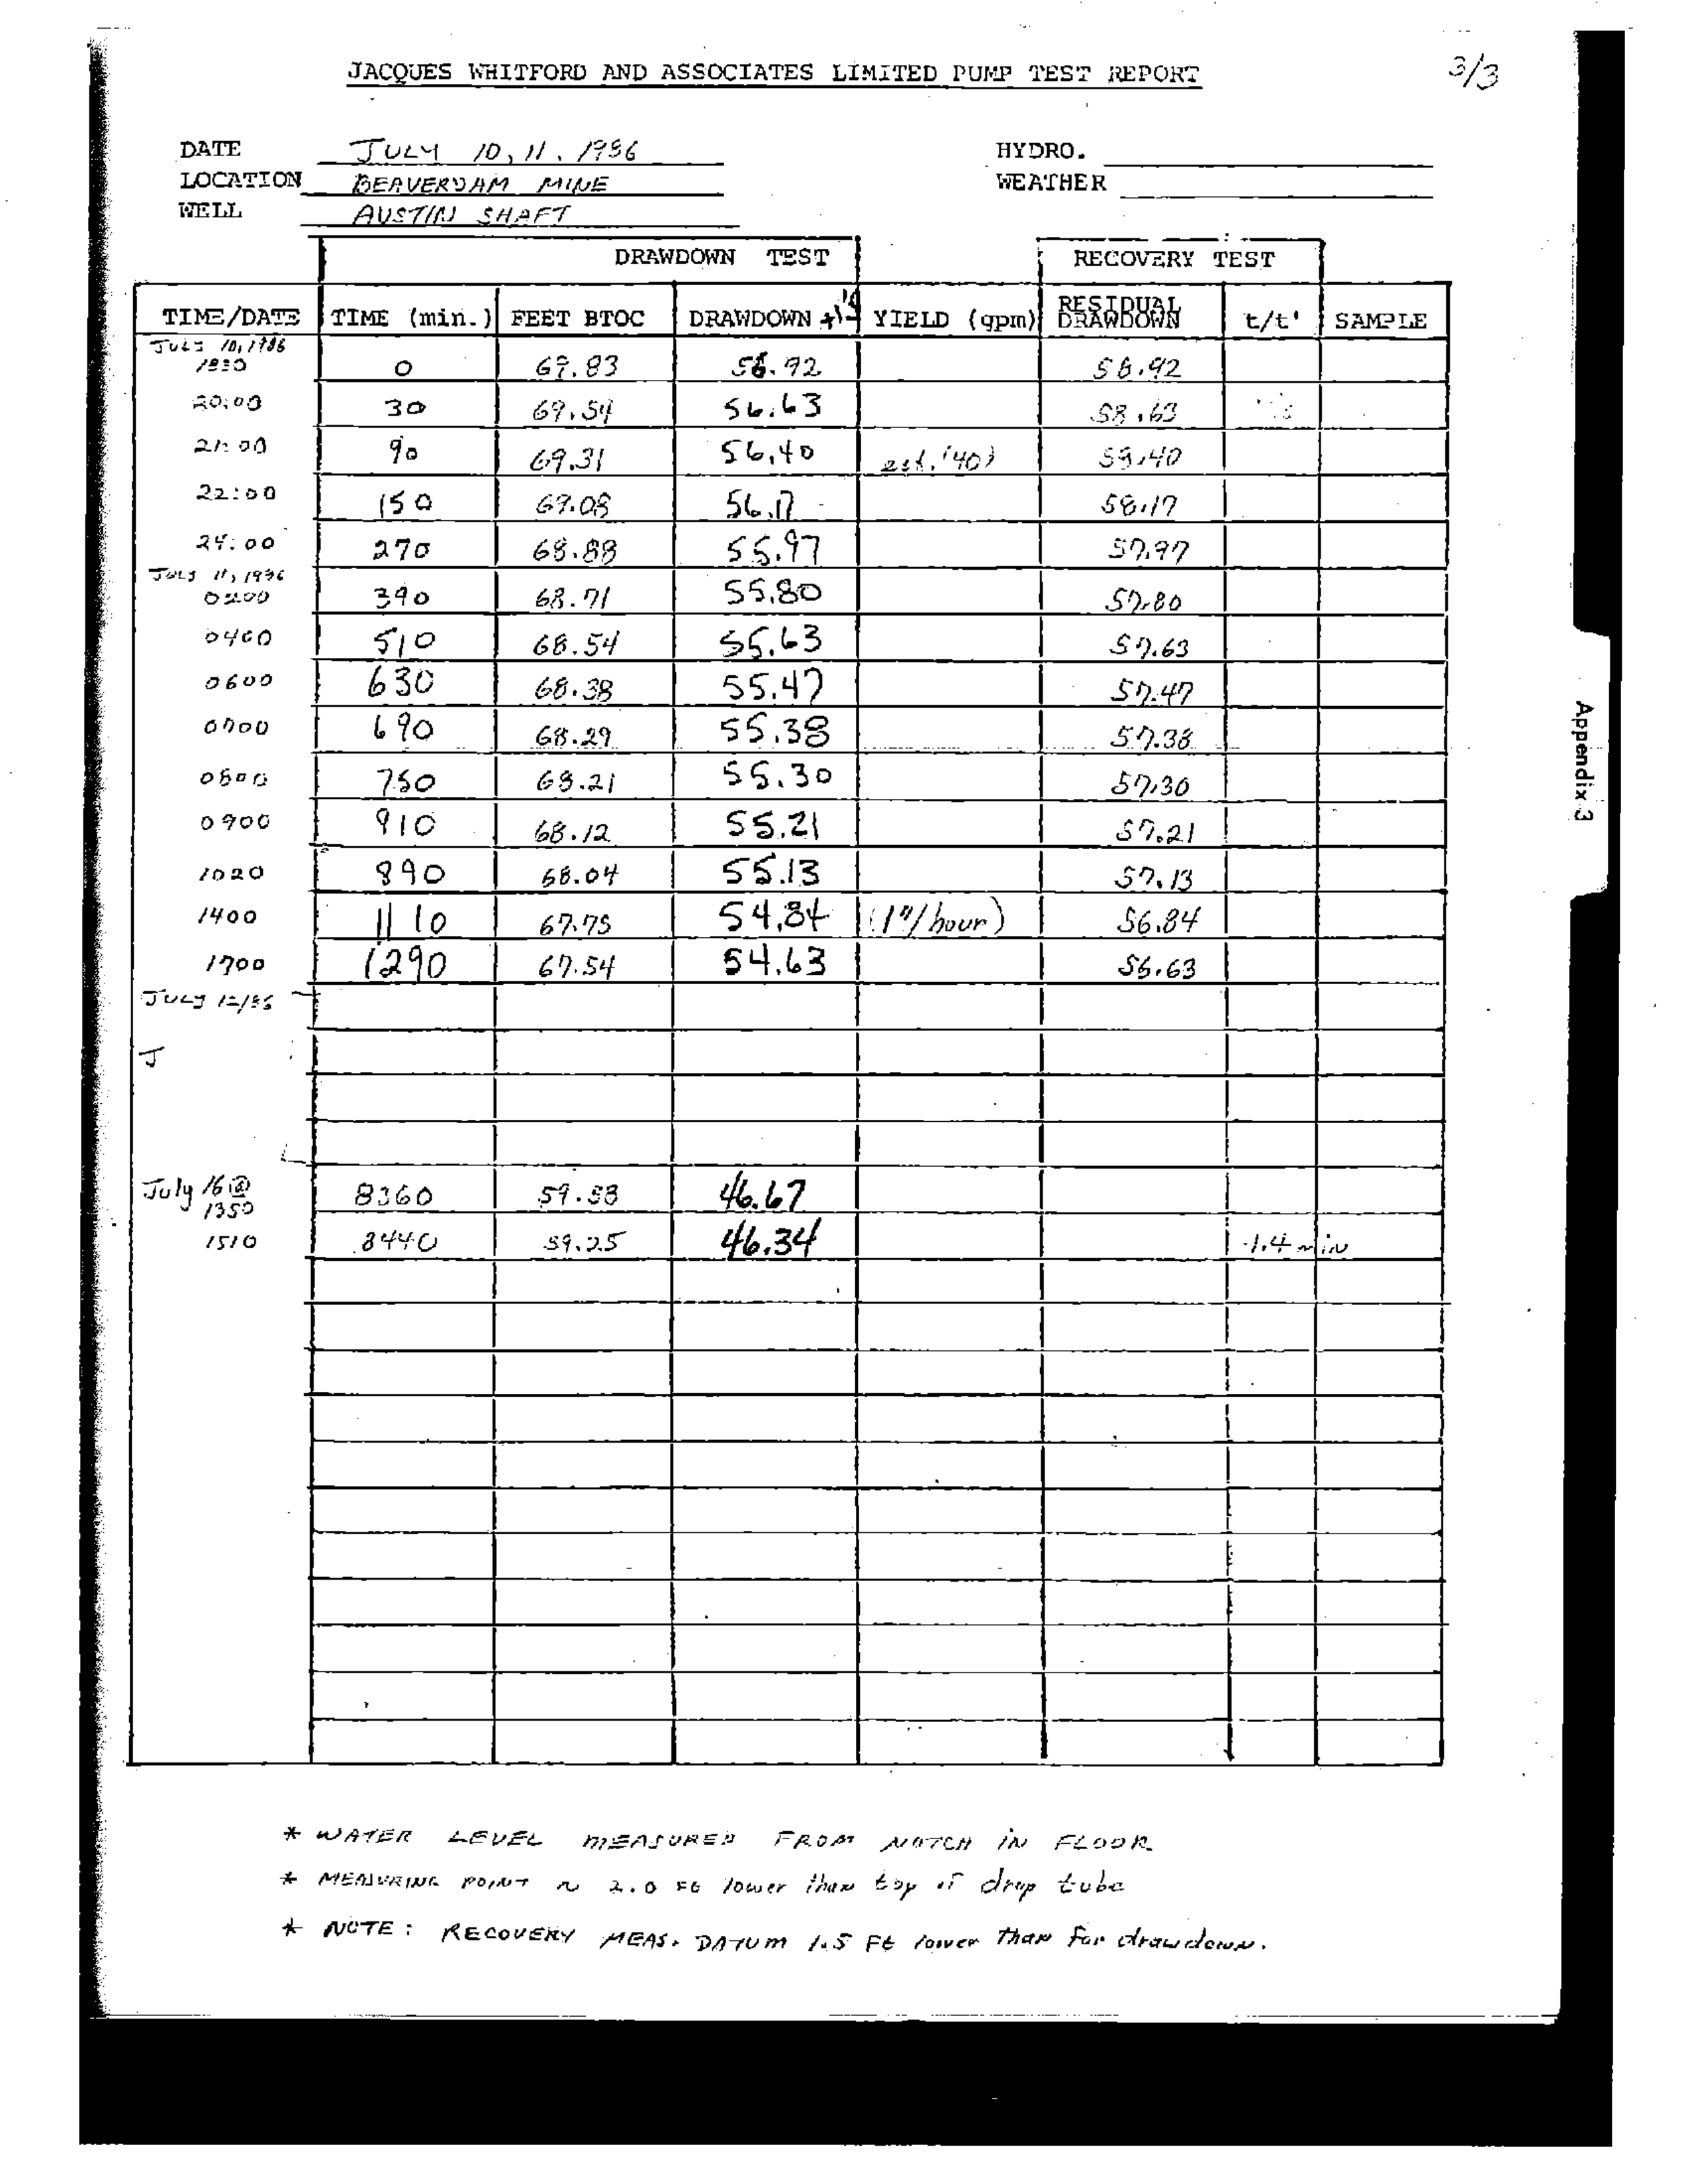 3/3
JACQUES WHITFORD AND ASSOCIATES LIMITED PUMP TEST REPORT
DATE JULY 10, 11, 1986 HYDRO.
LOCATION BEAVERDAM MINE WEATHER
WELL AUSTIN SHAFT
DRAWDOWN TEST RECOVERY TEST
TIME/DATE TIME (min.) FEET BTOC DRAWDOWN YIELD (gpm) RESIDUAL DRAWDOWN t/t' SAMPLE
July 10, 1986
1930 0 69.83 56.92 58.92
20:00 30 69.54 56.63 58.63
21:00 90 69.31 56.40 est. (40) 58.40
22:00 150 69.08 56.17 58.17
24:00 270 68.88 55.97 57.97
July 11, 1986
0200 390 68.71 55.80 57.80
0400 510 68.54 55.63 57.63
0600 630 68.38 55.47 57.47
0700 690 68.29 55.38 57.38
0800 750 68.21 55.30 57.30
0900 910 68.12 55.21 57.21
1020 890 68.04 55.13 57.13
1400 1110 67.75 54.84 (1"/hour) 56.84
1700 1290 67.54 54.63 56.63
July 12/86
J
July 16 @
1350 8360 59.58 46.67
1510 8440 59.25 46.34 1.4 min
* WATER LEVEL MEASURED FROM NOTCH IN FLOOR
* MEASURING POINT ~ 2.0 Ft lower than top of drop tube
* NOTE: RECOVERY MEAS. DATUM 1.5 Ft lower than for drawdown.
Appendix 3